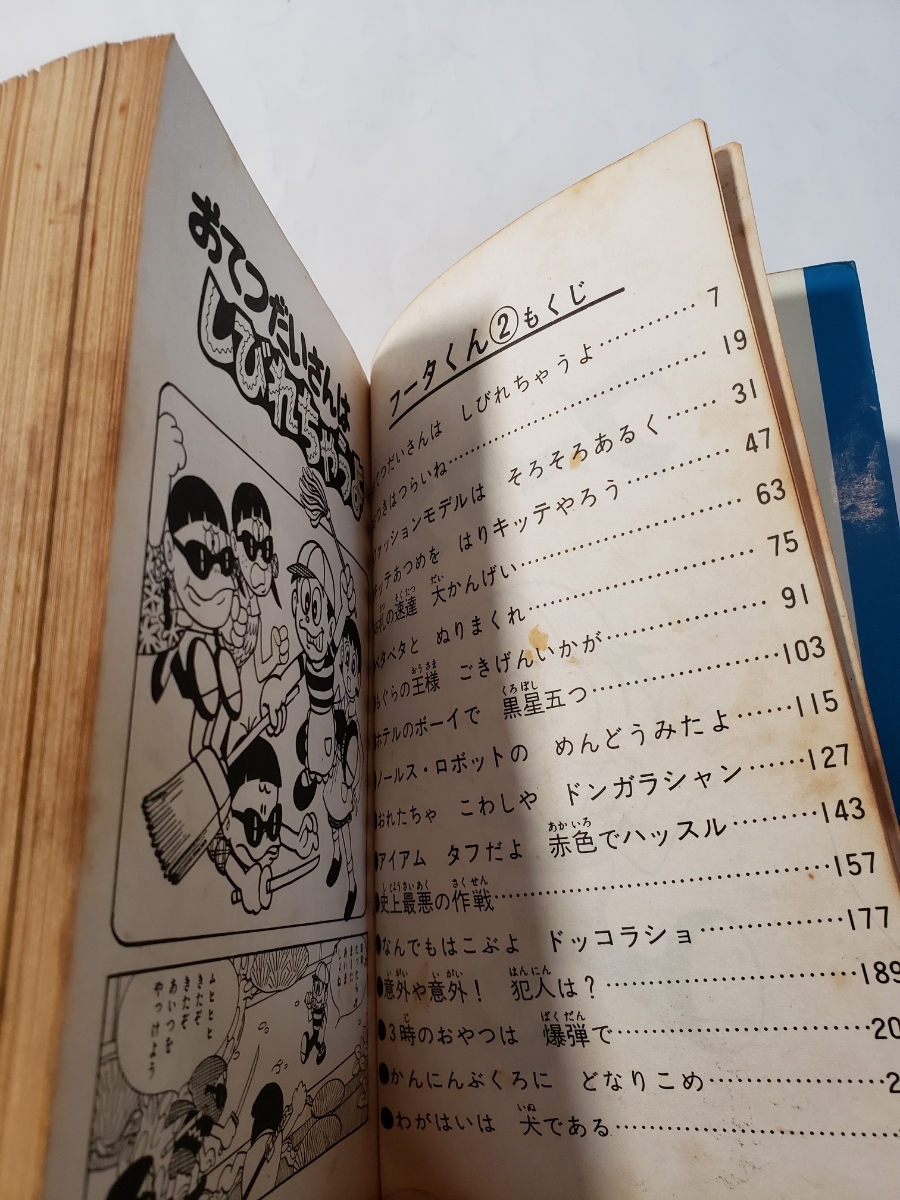 おてつだいさんは
しびれちゃうよ
ムヒヒヒ
きたぞ
きたぞ
あいつを
やっけよう
フータくん②もくじ
てつだいさんは しびれちゃうよ…………7
つきはつらいね……………………19
ファッションモデルは そろそろあるく……31
キッテあつめを はりキッテやろう…………47
お札の速達 大かんげい……………………63
ペタペタと ぬりまくれ……………………75
もぐらの王様 ごきげんいかが……………91
●ホテルのボーイで 黒星五つ……………103
●ノールス・ロボットの めんどうみたよ……115
●おれたちゃ こわしや ドンガラシャン……127
●アイアム タフだよ 赤色でハッスル………143
●史上最悪の作戦……………………………157
●なんでもはこぶよ ドッコラショ…………177
●意外や意外! 犯人は?……………………189
●3時のおやつは 爆弾で……………………20
●かんにんぶくろに どなりこめ……………2
●わがはいは 犬である………………………